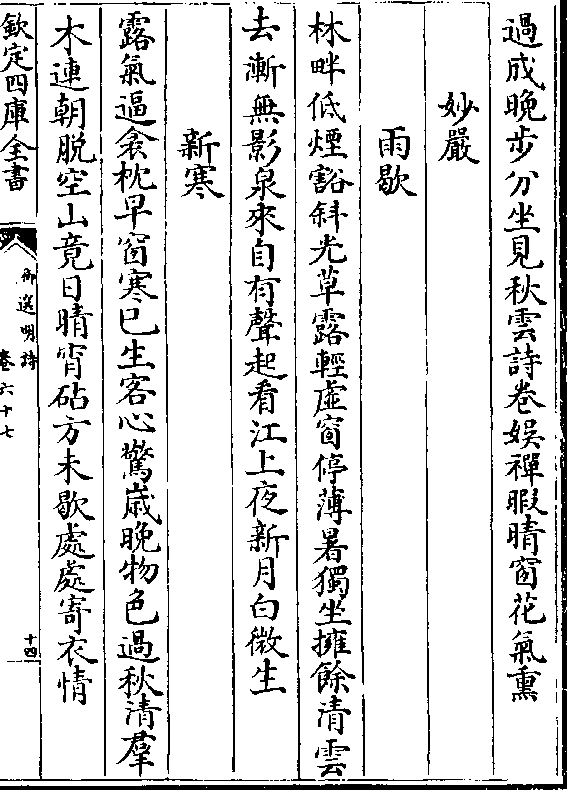 過成晚步分坐見秋雲詩卷娱禪暇晴窗花氣熏
妙嚴
雨歇
林畔低煙豁斜光草露輕虚窗停薄暑獨坐擁餘清雲
去漸無影泉來自有聲起看江上夜新月白微生
新寒
露氣逼衾枕早窗寒已生客心驚嵗晚物色過秋清羣
木連朝脱空山竟日晴宵砧方未歇處處寄衣情
欽定四庫全書
御選明詩
卷六十七
十四